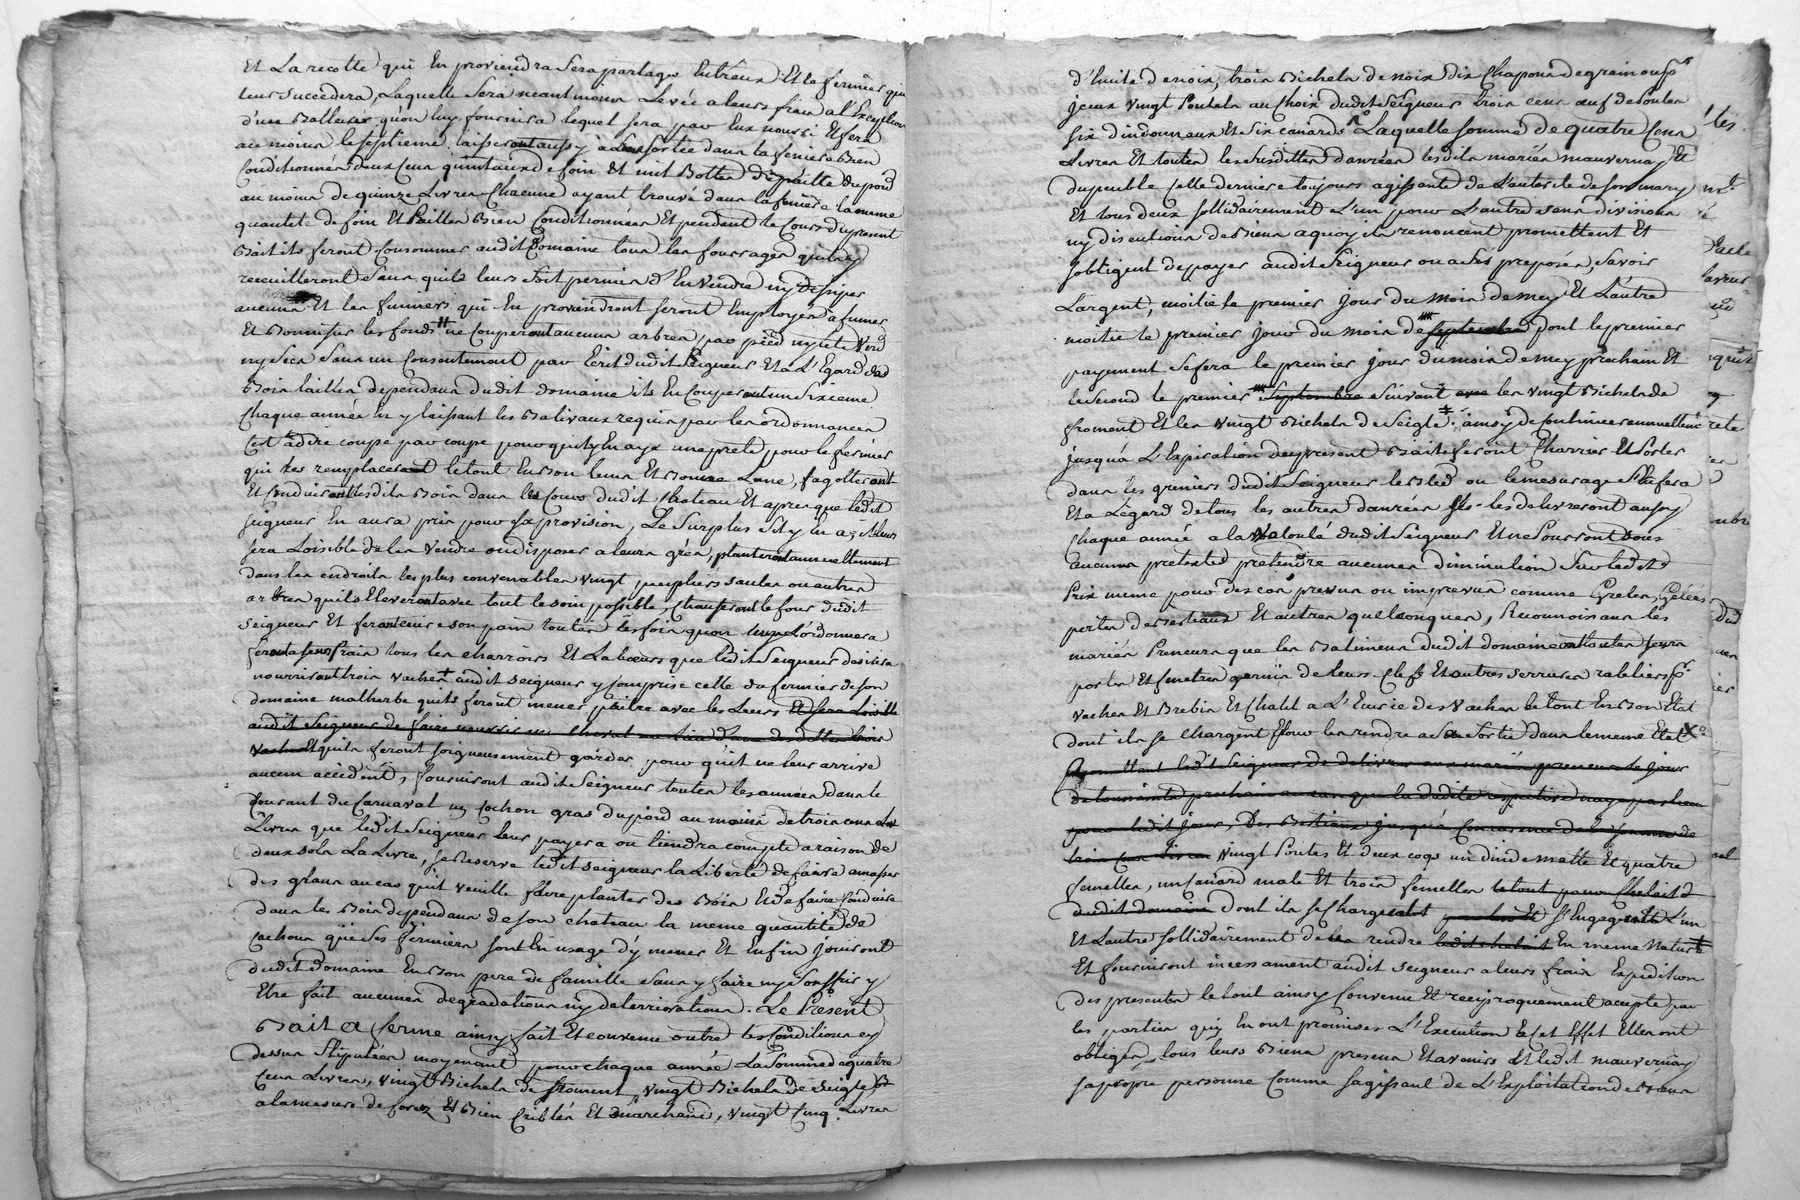 Et La recolte qui En proviendra Sera partagée Entreux Et le fermier qui
leur succedera, Laquelle Sera neantmoins Levée a leurs frais a l'Exception
d'une Batteuse, qu'on luy fournira lequel sera par Eux nourri Et fera
au moins le septieme, laisseront aussy à leur sortie dans la feniere Bien
Conditionnés deux Cens quintaux de foin Et mil Bottes de paille du poid
au moins de quinze Livres Chacune ayant trouvé dans la feniere la meme
quantité de foin Et Pailles Bien Conditionnées Et pendant le Cours du present
Bail ils feront Consommer audit Domaine tous les fourrages qu'ils y
receuilleront Sans qu'ils leurs soit permis d'En Vendre ny dissiper
aucuns Et les fumiers qui En proviendront seront Employés a fumer
Et Bonnifier les fonds # ne Couperont aucuns arbres par pied ny tete Verd
ny secs Sans un Consentement par Ecrit dudit Seigneur Et a L'Egard des
Bois taillis dependans dudit domaine ils En Couperont un Sixieme
Chaque année En y laissant les Balivaux requis par les ordonnances
C'est adire coupe par coupe pour qu'il y En aye une prete pour le fermier
qui les remplacera le tout En Bon tems Et Bonne Lune, fagotteront
Et Conduiront lesdits Bois dans les Cours dudit Chateau Et apres que ledit
Seigneur En aura pris pour sa provision, Le Surplus S'il y En a, il leurs
sera Loisible de les Vendre ou disposer a leurs grés, planteront annuellement
dans les endroits les plus convenables vingt peupliers saules ou autres
arbres qu'ils Eleveront avec tout le soin possible, Chauferont le four dudit
Seigneur Et feront cuire son pain toutes les fois quon le leur ordonnera
feront a Leurs frais tous les charrois Et Labours que ledit Seigneur desirera
nourriront trois vaches + audit seigneur y Comprise celle du fermier de son
domaine malherbe qu'ils feront mener paitre avec les Leurs Et sera Loisible
audit Seigneur de faire nourrir un Cheval au lieu d'une desdittes trois
Vaches Et qu'ils feront soigneusement garder pour qu'il ne leur arrive
aucun accident, fourniront audit Seigneur toutes les années dans le
Courant du Carnaval un Cochon gras du poid au moins de trois cens
Livres que ledit Seigneur leur payera ou tiendra compte a raison de
deux sols La Livre, se Reserve ledit seigneur la Liberté de faire amasser
des glans au cas qu'il veuille faire planter des Bois Et de faire Conduire
dans les Bois dependans de son chateau la meme quantité de
Cochons que ses fermiers sont En usage d'y mener Et Enfin jouiront
dudit Domaine En Bon pere de famille Sans y faire ny Souffrir y
Etre fait aucunes degradations ny deteriorations. Le Présent
Bail a ferme ainsy fait Et convenu outre les Conditions cy
dessus Stipulées moyenant pour chaque année La Somme de quatre
Cens Livres, vingt Bichets de froment, vingt Bichets de Seigle
a la mesure de forez Et Bien Criblés Et marchand, vingt Cinq Livres
d'huile de noix, trois Bichets de noix Dix Chapons de grain ou
jeux vingt Poulets au Choix dudit Seigneur trois cens œuf de Poules
Six dindonneaux Et Six canards Laquelle somme de quatre Cens
Livres Et toutes les Susdittes danrées lesdits mariés mauvernay Et
dupeuble Celle derniere toujours agissante de L'autorité de son mary
Et tous deux Sollidairement L'un pour L'autre sans division
ny discution de Biens a quoy ils renoncent promettent Et
sobligent de payer audit Seigneur ou a Ses preposés, Savoir
Largent, moitié le premier jour du mois de mey Et L'autre
moitié le premier jour du mois de septembre dont le premier
payement Sefera le premier jour du mois de mey prochain Et
le Second le premier Septembre Suivant avec les vingt Bichets de
froment Et les vingt Bichets de Seigle ainsy de Continuer annuellement
jusqu'a L'Expiration du present Bail feront Charrier Et Porter
dans les greniers dudit Seigneur les bled ou le mesurage S'En fera
Et a Légard de tous les autres danrées ils les delivreront aussy
Chaque année a la Volonté dudit Seigneur Et ne Pourront Sous
aucuns pretextes pretendre aucunes diminution Sur ledit
Prix meme pour des cas prevus ou imprevus comme Greles, Gélées
pertes de Bestiaux Et autres quelconques, Reconnoissans les
mariés Preneurs que les Batimens dudit domaine ont toutes leurs
portes Et fenetres garnis de leurs Clefs Et autres serrures rateliers
Vaches Et Brebis Et Chalit a L'Ecurie des Vaches le tout En Bon Etat
dont ils se Chargent Pour les rendre a la Sortie dans le meme Etat X
Promettant ledit Seigneur de delivrer aux mariés preneurs le jour
de toussaint prochain au cas que la dudite
pour ledit jour, Des Bestiaux jusqu'a Concurrence de la somme de
trois Cens Livres Vingt Poules Et deux coqs un dinde malle Et quatre
femelles, un Canard male Et trois femelles le tout pour Chelait
dudit domaine Dont ils se Chargent pour les Et S'Engagent L'un
Et L'autre Sollidairement de les rendre ledit chelait En meme Nature
Et fourniront incessament audit Seigneur a leurs frais Expedition
des presentes le tout ainsy Convenu Et reciproquement accepté par
les parties qui En ont promises L'Execution & a cet Effet Elles ont
obligés tous leurs Biens presens Et avenirs Et ledit mauvernay
sa propre personne Comme s'agissant de L'Exploitation de Biens